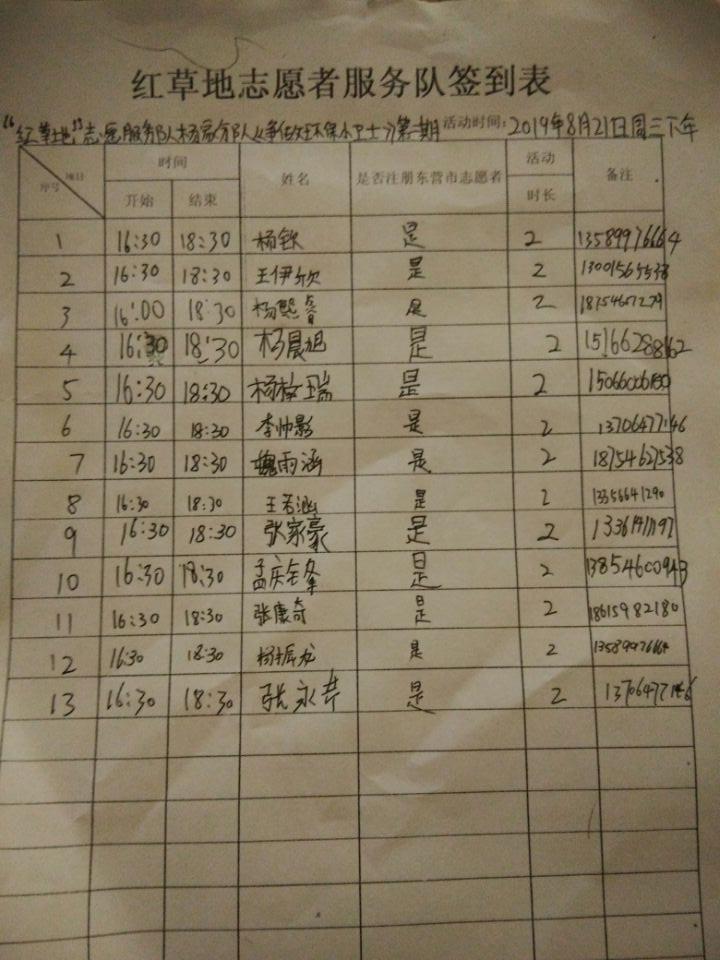 红草地志愿者服务队签到表
“红草地”志愿服务队杨家分队《争做环保小卫士》第一期 活动时间：2019年8月21日周三下午
序号 项目 时间 姓名 是否注册东营市志愿者 活动 备注
开始 结束 时长
1 16:30 18:30 杨钦 是 2 13589976664
2 16:30 18:30 王伊欣 是 2
3 16:00 18:30 杨熙睿 是 2 18754607279
4 16:30 18:30 杨晨旭 是 2 15166288162
5 16:30 18:30 是 2
6 16:30 18:30 李帅影 是 2 13706477146
7 16:30 18:30 魏雨涵 是 2 18754627538
8 16:30 18:30 王若涵 是 2 13356641290
9 16:30 18:30 张家豪 是 2
10 16:30 18:30 孟庆锋 是 2 13854600943
11 16:30 18:30 张康奇 是 2 18615982180
12 16:30 18:30 杨振龙 是 2 13589976664
13 16:30 18:30 张永芹 是 2 13706477146